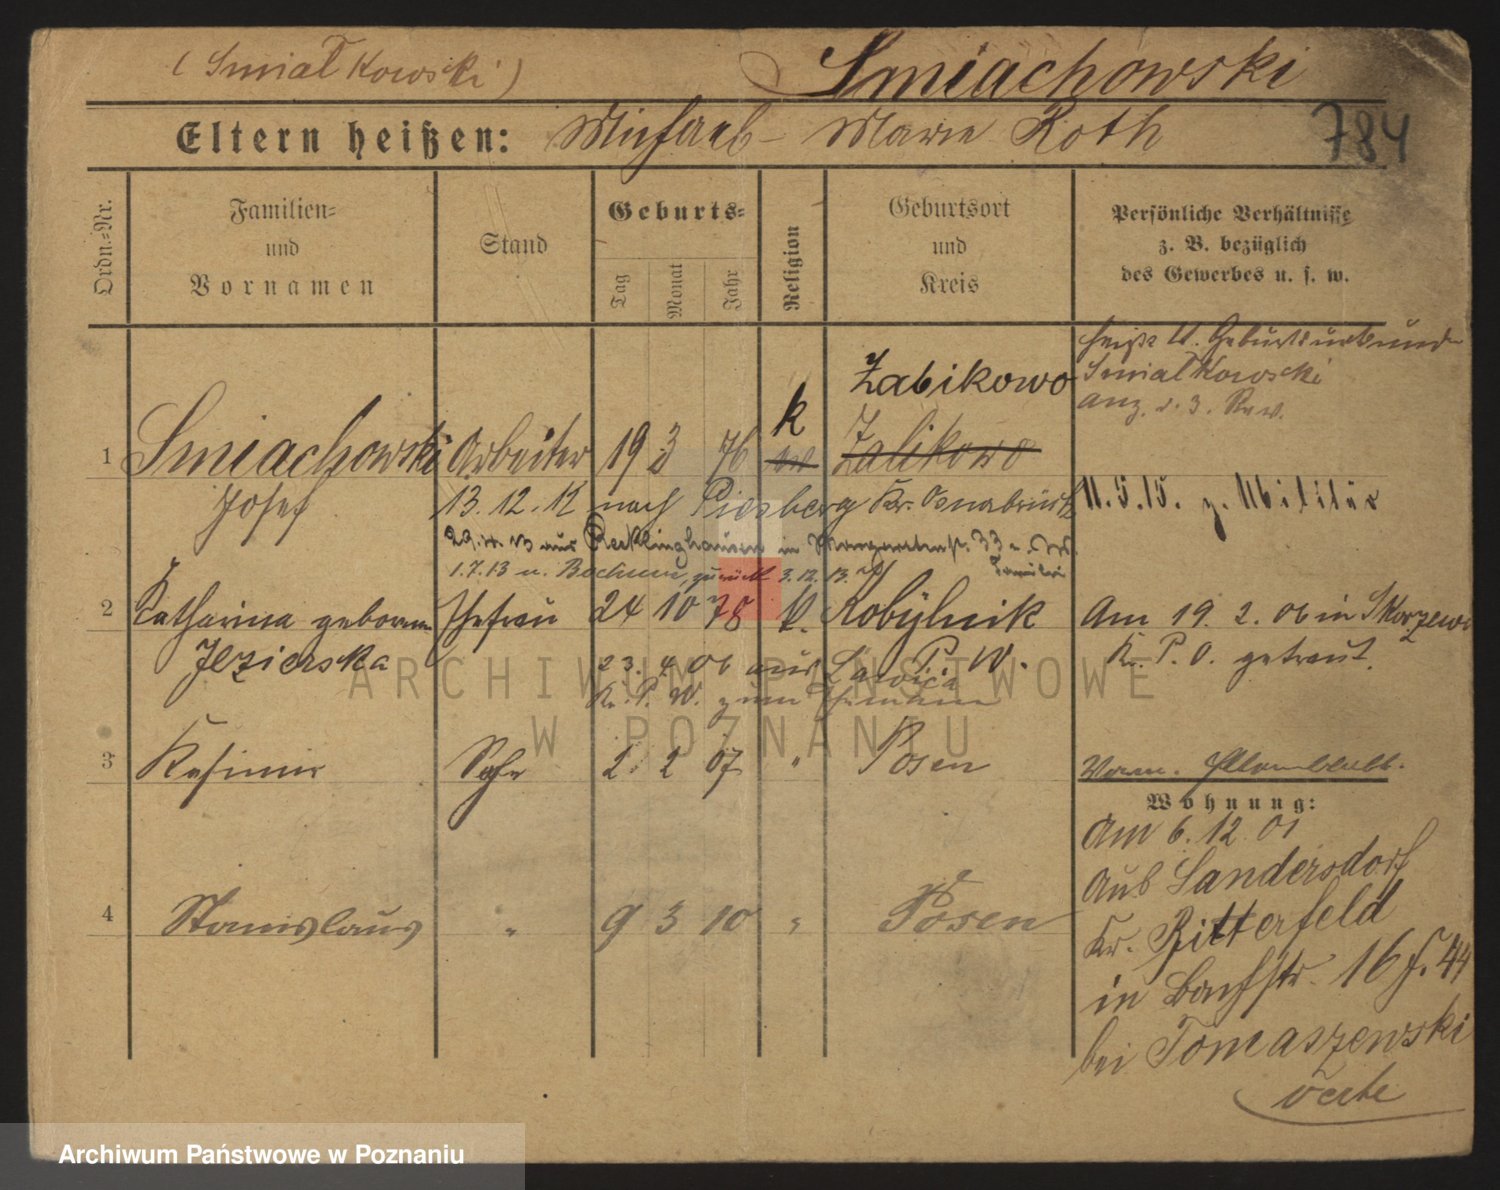 (Smiatkowski)
Smiachowski
784
Eltern heißen: Michael - Marie Roth
Ordn.=Nr.
Familien= und Vornamen
Stand
Geburts=
Tag Monat Jahr
Religion
Geburtsort und Kreis
Persönliche Verhältnisse
z. B. bezüglich
des Gewerbes u. s. w.
heißt lt. Geburtsurkunde
Smiatkowski
anz. d. 3. Rev.
Zabikowo
k
1 Smiachowski Arbeiter 19 3 76 Zalikowo
Josef
13.12.12 nach Piesberg Kr. Osnabrück
11.5.15. z. Militär
29.4.13 aus Recklinghausen in 33
1.7.13 n. Bochum, zurück 3.12.13.
2 Katharina geborene Ehefrau 24 10 78 k. Kobylnik
Am 19. 2. 06 in Skorzewo
Jezierska
P. W.
Kr. P. O. getraut.
23. 4. 06 aus Lawica
Kr. P. W. zum Ehemann
3 Kasimir Sohn 2. 2 07 " Posen
Wohnung:
Am 6. 12 01
4 Stanislaus " 9 3 10 " Posen
aus Sandersdorf
Kr. Bitterfeld
in 16 44
bei Tomaszewski
ARCHIWUM PAŃSTWOWE
W POZNANIU
Archiwum Państwowe w Poznaniu